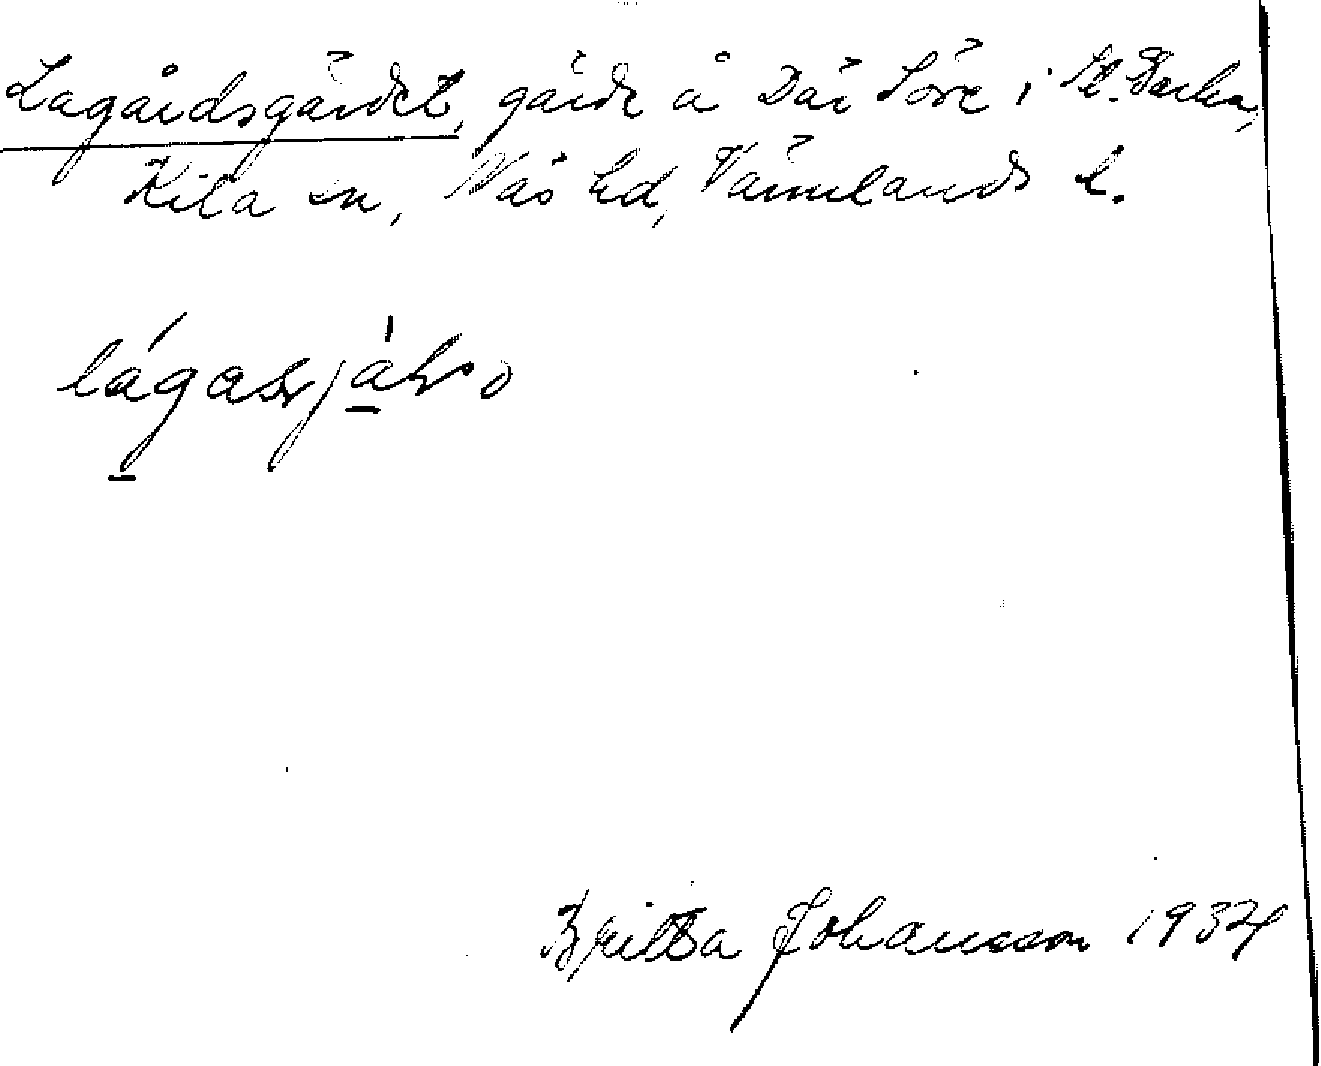 Lagårdsgärdet, gärde å Där Söre i St. Barka,
Kila sn, Näs hd, Värmlands l.
Britta Johansson 1934